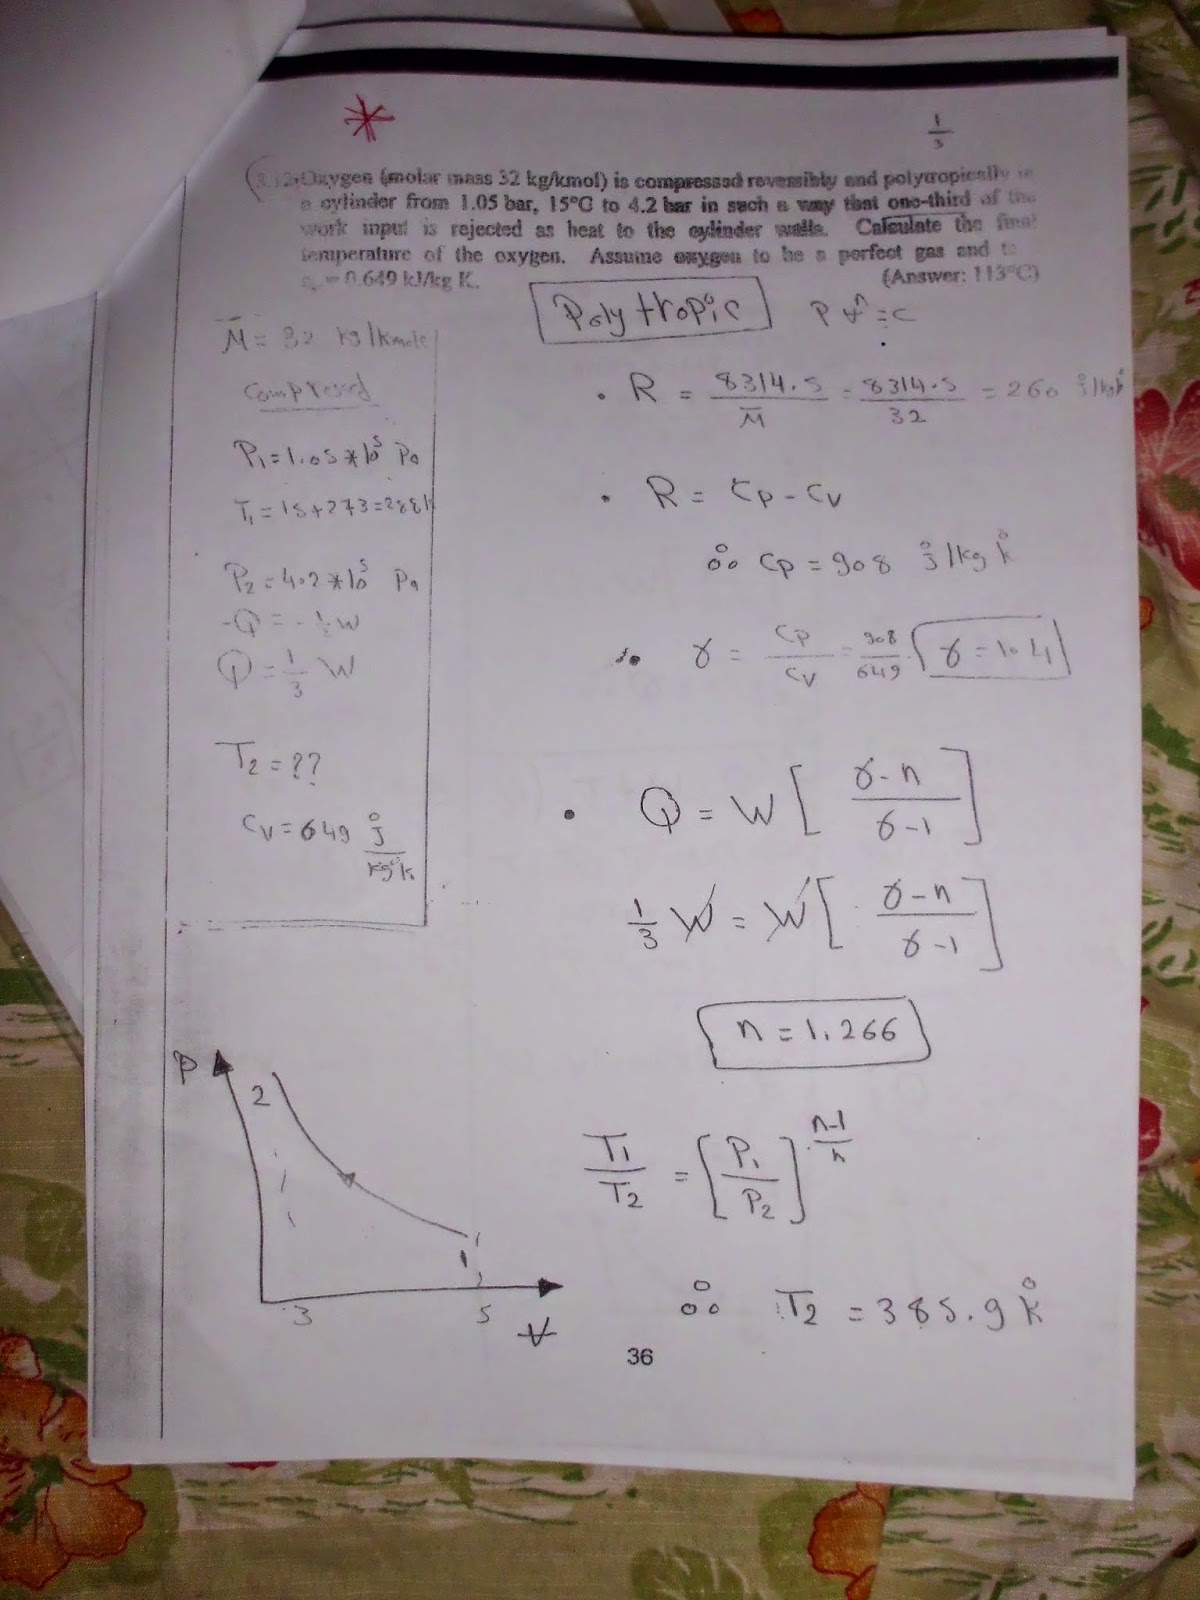 *
1/3
Oxygen (molar mass 32 kg/kmol) is compressed reversibly and polytropically in
a cylinder from 1.05 bar, 15°C to 4.2 bar in such a way that one-third of the
work input is rejected as heat to the cylinder walls. Calculate the final
temperature of the oxygen. Assume oxygen to be a perfect gas and
= 0.649 kJ/kg K. (Answer: 113°C)
Polytropic P V^n = C
M̄ = 32 kg/kmole
Compressed
P₁ = 1.05 * 10⁵ Pa
T₁ = 15 + 273 = 288 k
P₂ = 4.2 * 10⁵ Pa
-Q = - 1/3 W
Q = 1/3 W
T₂ = ??
Cv = 649 J/kg°k
• R = 8314.5/M̄ = 8314.5/32 = 260 J/kg k
• R = Cp - Cv
∴ Cp = 908 J/kg k
γ = Cp/Cv = 908/649 γ = 1.4
• Q = W [ γ-n / γ-1 ]
1/3 W = W [ γ-n / γ-1 ]
n = 1.266
T₁/T₂ = [ P₁/P₂ ]^(n-1/n)
∴ T₂ = 385.9 k
P
2
1
3
5
V
36